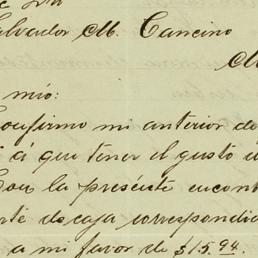 Salvador M. Cancino
M
mio:
Confirmo mi anterior de
á que tener el gusto
Con la presente encont
rte de caja correspondie
a mi favor de $15.94.